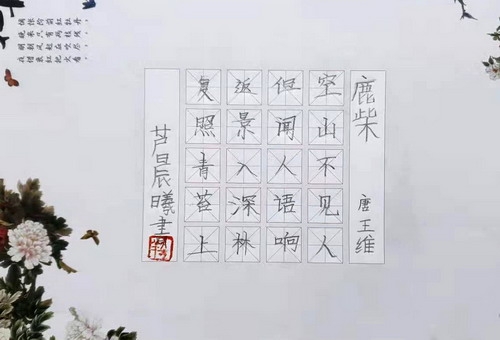 鹿柴
唐 王维
空山不见人
但闻人语响
返景入深林
复照青苔上
芦晨曦書